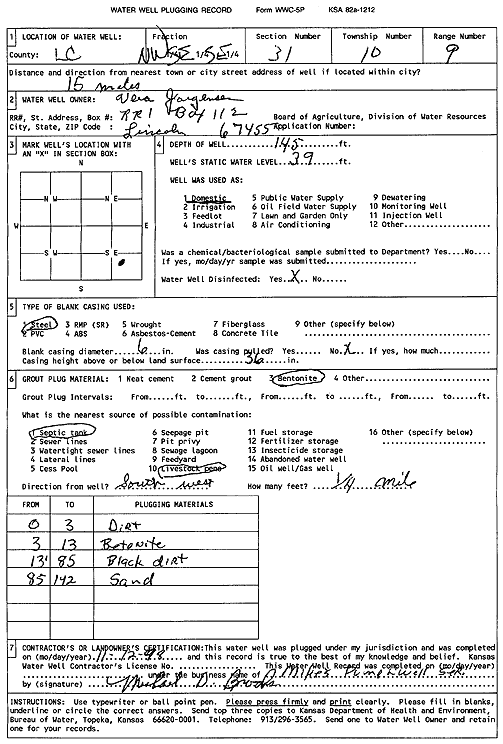 WATER WELL PLUGGING RECORD Form WWC-5P KSA 82a-1212
1 LOCATION OF WATER WELL: Fraction Section Number Township Number Range Number
County: LC NW SE 1/4 SE 1/4 31 10 9
Distance and direction from nearest town or city street address of well if located within city?
15 miles
2 WATER WELL OWNER: Vera Jorgensen
RR#, St. Address, Box #: RR1 Box 112 Board of Agriculture, Division of Water Resources
City, State, ZIP Code : Lincoln 67455 Application Number:
3 MARK WELL'S LOCATION WITH AN "X" IN SECTION BOX:
N
N W N E
W E
S W S E
S
4 DEPTH OF WELL....145....ft.
WELL'S STATIC WATER LEVEL...39...ft.
WELL WAS USED AS:
1 Domestic 5 Public Water Supply 9 Dewatering
2 Irrigation 6 Oil Field Water Supply 10 Monitoring Well
3 Feedlot 7 Lawn and Garden Only 11 Injection Well
4 Industrial 8 Air Conditioning 12 Other..........
Was a chemical/bacteriological sample submitted to Department? Yes....No....
If yes, mo/day/yr sample was submitted................
Water Well Disinfected: Yes.X.. No......
5 TYPE OF BLANK CASING USED:
1 Steel 3 RMP (SR) 5 Wrought 7 Fiberglass 9 Other (specify below)
2 PVC 4 ABS 6 Asbestos-Cement 8 Concrete Tile ..........................
Blank casing diameter.....6....in. Was casing pulled? Yes...... No.X... If yes, how much.........
Casing height above or below land surface.......36......in.
6 GROUT PLUG MATERIAL: 1 Neat cement 2 Cement grout 3 Bentonite 4 Other....................
Grout Plug Intervals: From.....ft. to.....ft., From.....ft. to....ft., From..... to......ft.
What is the nearest source of possible contamination:
1 Septic tank 6 Seepage pit 11 Fuel storage 16 Other (specify below)
2 Sewer lines 7 Pit privy 12 Fertilizer storage ......................
3 Watertight sewer lines 8 Sewage lagoon 13 Insecticide storage
4 Lateral lines 9 Feedyard 14 Abandoned water well
5 Cess Pool 10 Livestock pens 15 Oil well/Gas well
Direction from well? South west How many feet? 1/4 mile
FROM TO PLUGGING MATERIALS
0 3 Dirt
3 13 Betonite
13' 85 Black dirt
85 142 Sand
7 CONTRACTOR'S OR LANDOWNER'S CERTIFICATION: This water well was plugged under my jurisdiction and was completed
on (mo/day/year).11-12-98.... and this record is true to the best of my knowledge and belief. Kansas
Water Well Contractor's License No. .................. This Water Well Record was completed on (mo/day/year)
.................under the business name of Mikes Pump & Well Ser.
by (signature) Michael D. Brooks
INSTRUCTIONS: Use typewriter or ball point pen. Please press firmly and print clearly. Please fill in blanks,
underline or circle the correct answers. Send top three copies to Kansas Department of Health and Environment,
Bureau of Water, Topeka, Kansas 66620-0001. Telephone: 913/296-3565. Send one to Water Well Owner and retain
one for your records.